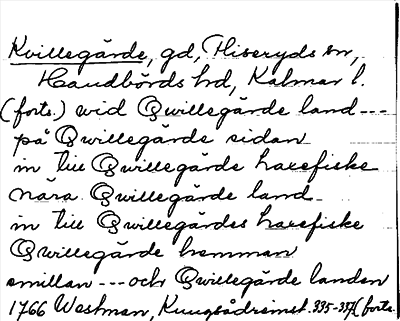 Kvillegärde, gd, Fliseryds sn,
Handbörds hd, Kalmar l.
(forts.) wid Qwillegärde land ---
på Qwillegärde sidan
in till Qwillegärde laxefiske
nära Qwillegärde land
in till Qwillegärdes laxefiske
Qwillegärde hemman
emillan --- och Qwillegärde landen
1766 Westman, Kungsådreinst. 335-357 (forts.